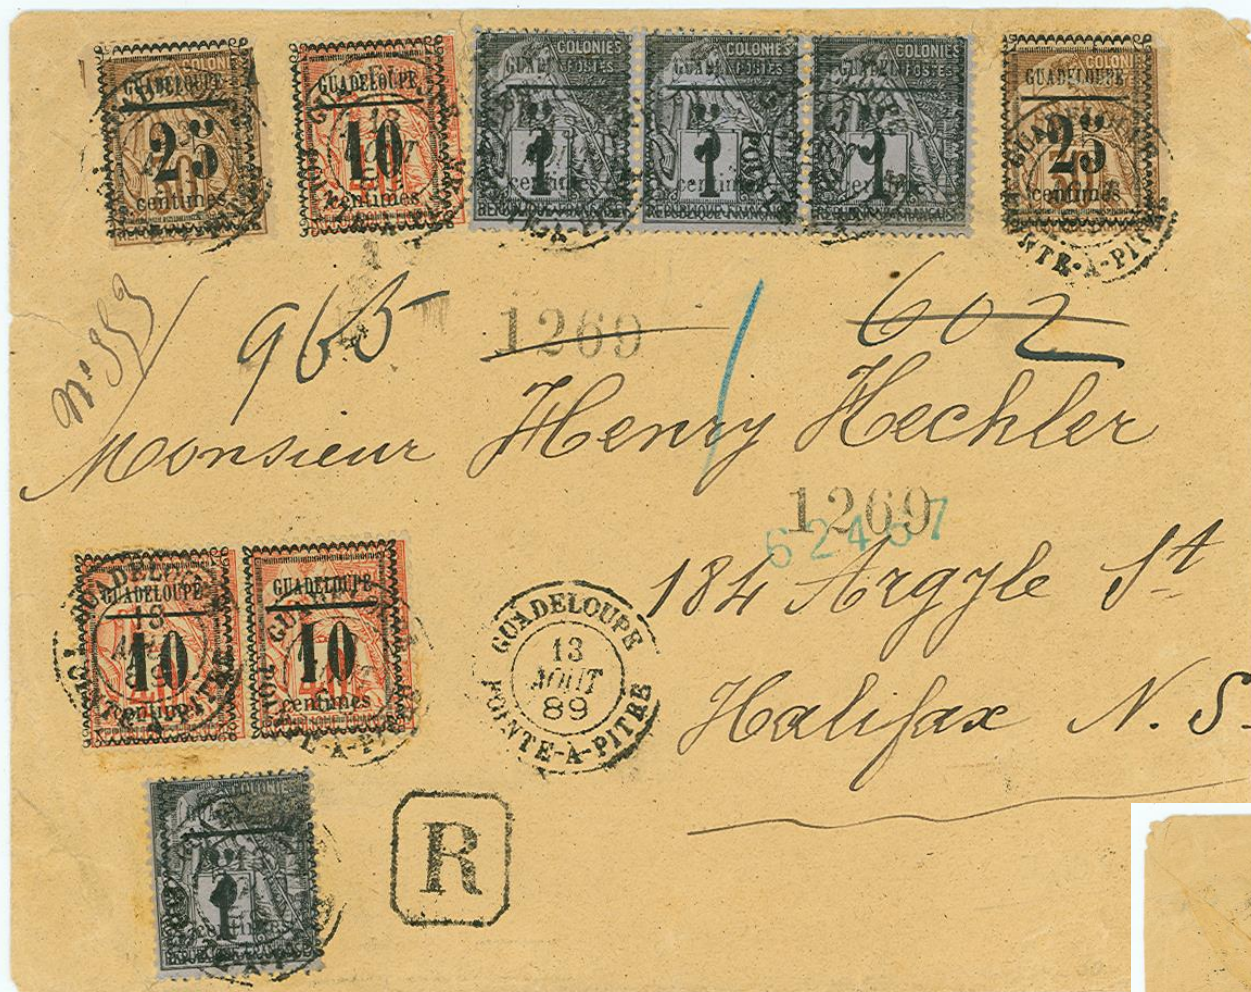 COLONI
GUADELOUPE
25
centimes
GUADELOUPE
10
centimes
COLONIES
POSTES
1
centime
REPUBLIQUE FRANÇAISE
COLONIES
POSTES
1
centime
REPUBLIQUE FRANÇAISE
COLONIES
POSTES
1
centime
REPUBLIQUE FRANÇAISE
COLONI
GUADELOUPE
25
centimes
POINTE-A-PITRE
965 1269 602
Monsieur Henry Hechler
1269
62467
184 Argyle St
Halifax N.S.
GUADELOUPE
10
centimes
GUADELOUPE
10
centimes
GUADELOUPE
13
AOUT
89
POINTE-A-PITRE
COLONIES
1
R